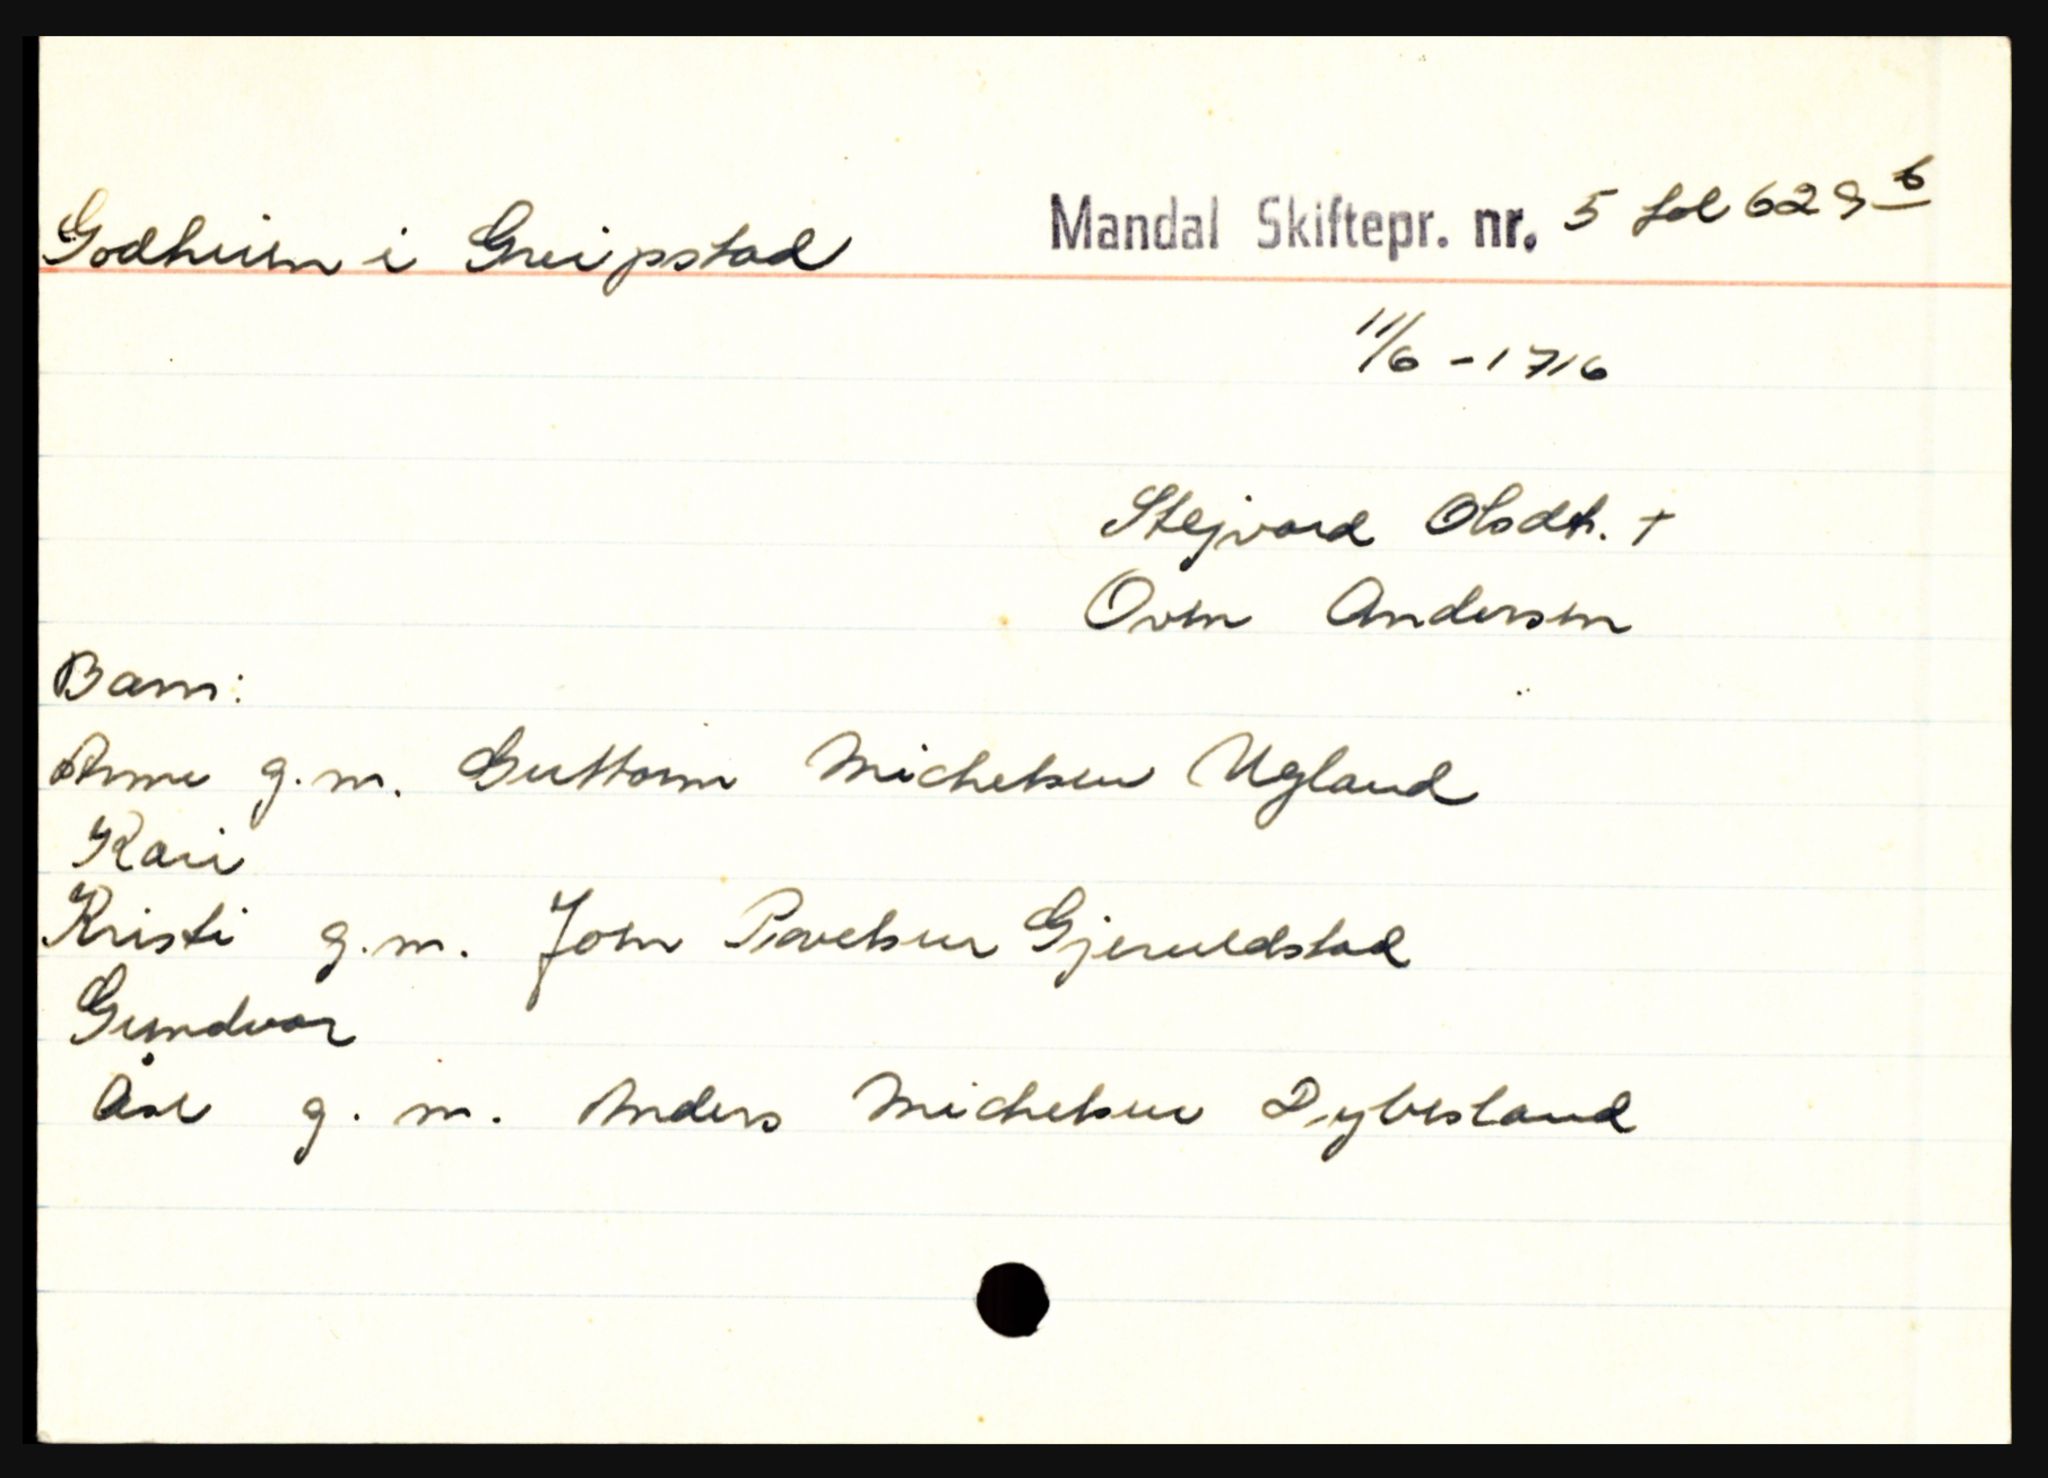 Godheim i Greipstad
Mandal Skiftepr. nr. 5 fol 629 b
11/6 - 1716
Stejvard Olsdt. +
Oven Andersen
Barn:
Anne g.m. Guttorm Michelsen Ugland
Kari
Kristi g.m. Joen Pavelsen Gjeruldstad
Gundvor
Åse g.m. Anders Michelsen Dybesland